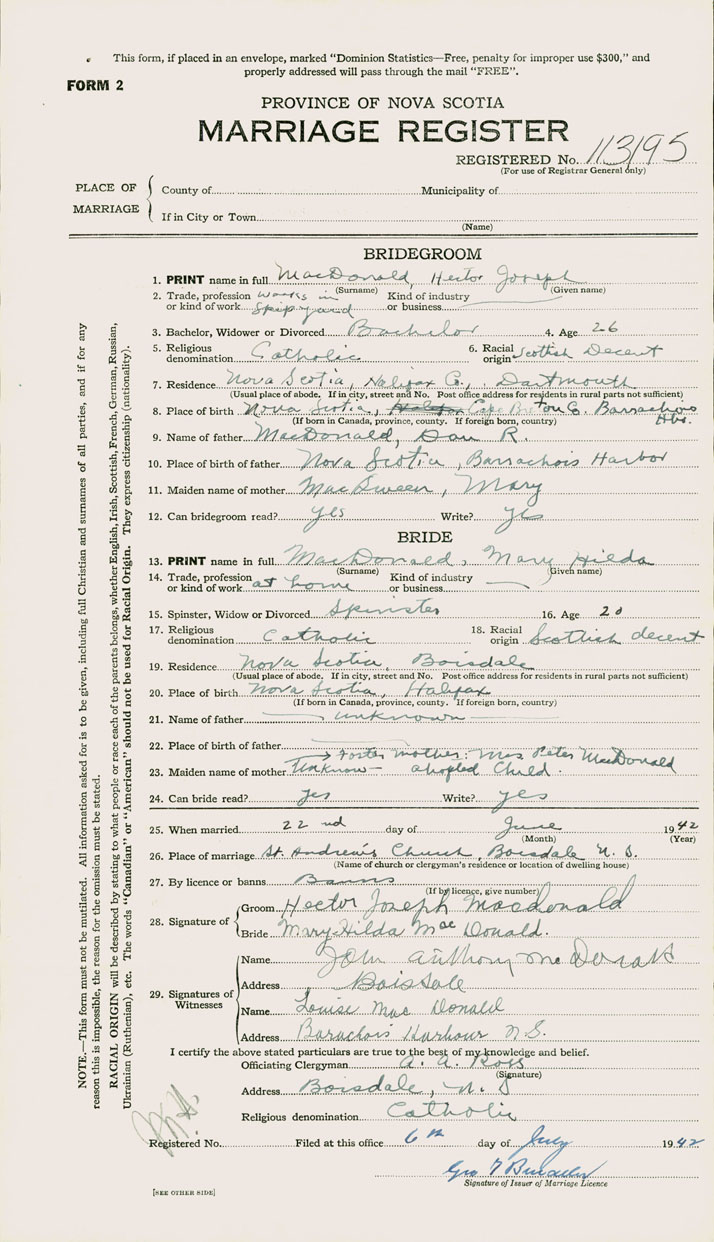 This form, if placed in an envelope, marked "Dominion Statistics—Free, penalty for improper use $300," and
properly addressed will pass through the mail "FREE".
FORM 2
PROVINCE OF NOVA SCOTIA
MARRIAGE REGISTER
REGISTERED No. 113195
(For use of Registrar General only)
PLACE OF MARRIAGE
County of Municipality of
If in City or Town
(Name)
BRIDEGROOM
1. PRINT name in full MacDonald, Hector Joseph
(Surname) (Given name)
2. Trade, profession or kind of work works in Shipyard Kind of industry or business
3. Bachelor, Widower or Divorced Bachelor 4. Age 26
5. Religious denomination Catholic 6. Racial origin Scottish Decent
7. Residence Nova Scotia, Halifax Co., Dartmouth
(Usual place of abode. If in city, street and No. Post office address for residents in rural parts not sufficient)
8. Place of birth Nova Scotia, Halifax Cape Breton Co. Barrachois Hbr.
(If born in Canada, province, county. If foreign born, country)
9. Name of father MacDonald, Dan R.
10. Place of father Nova Scotia, Barrachois Harbor
11. Maiden name of mother MacSween, Mary
12. Can bridegroom read? yes Write? yes
BRIDE
13. PRINT name in full MacDonald, Mary Hilda
(Surname) (Given name)
14. Trade, profession or kind of work at home Kind of industry or business
15. Spinster, Widow or Divorced Spinster 16. Age 20
17. Religious denomination Catholic 18. Racial origin Scottish decent
19. Residence Nova Scotia, Boisdale
(Usual place of abode. If in city, street and No. Post office address for residents in rural parts not sufficient)
20. Place of birth Nova Scotia, Halifax
(If born in Canada, province, county. If foreign born, country)
21. Name of father unknown
22. Place of birth of father
Foster mother: Mrs Peter MacDonald
23. Maiden name of mother Unknow — adopted Child.
24. Can bride read? yes Write? yes
25. When married 22nd day of June 1942
(Month) (Year)
26. Place of marriage St. Andrew's Church, Boisdale N. S.
(Name of church or clergyman's residence or location of dwelling house)
27. By licence or banns Banns
(If by licence, give number)
28. Signature of
Groom Hector Joseph Macdonald
Bride Mary Hilda MacDonald.
29. Signatures of Witnesses
Name John Anthony
Address Boisdale
Name Louise MacDonald
Address Barachois Harbour N.S.
I certify the above stated particulars are true to the best of my knowledge and belief.
Officiating Clergyman A. A. Ross
(Signature)
Address Boisdale, N. S
Religious denomination Catholic
Registered No. Filed at this office 6th day of July 1942
Signature of Issuer of Marriage Licence
[SEE OTHER SIDE]
NOTE.—This form must not be mutilated. All information asked for is to be given, including full Christian and surnames of all parties, and if for any
reason this is impossible, the reason for the omission must be stated.
RACIAL ORIGIN will be described by stating to what people or race each of the parents belongs, whether English, Irish, Scottish, French, German, Russian,
Ukrainian (Ruthenian), etc. The words "Canadian" or "American" should not be used for Racial Origin. They express citizenship (nationality).